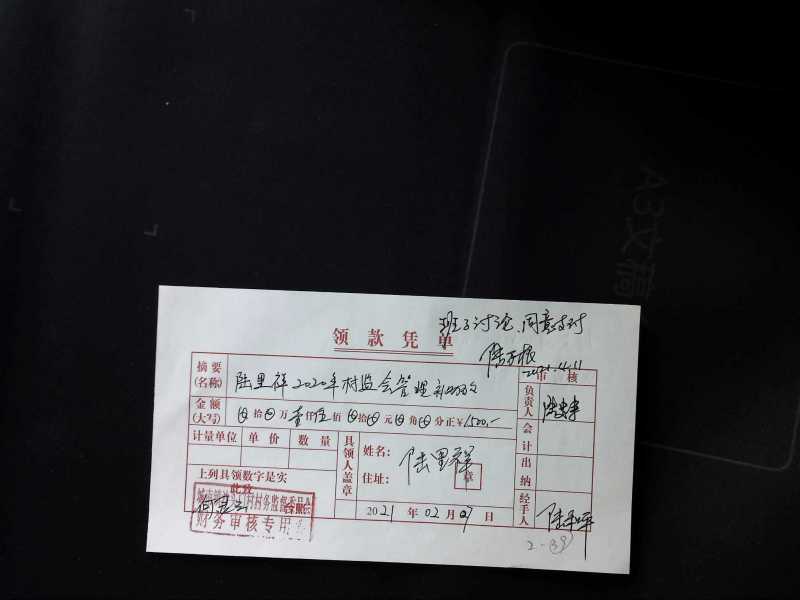 A3文稿
班子讨论,同意支付
领款凭单
2021.4.11
审核
摘要(名称) 陆里祥2020年村监会管理补助款
负责人
金额(大写) ⊗拾⊗万壹仟伍佰⊗拾⊗元⊗角⊗分正¥1500.-
会计
计量单位 单价 数量
具领人盖章
姓名: 陆里祥
住址:
章
出纳
上列具领数字是实
此致
村务监督委员会
财务审核专用章
2021年02月07日
经手人
2-39